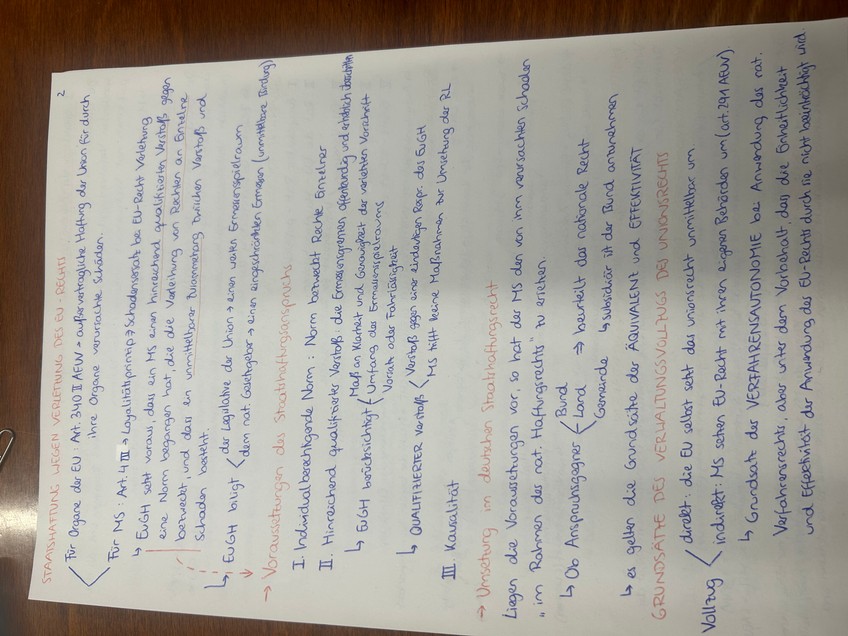 2
STAATSHAFTUNG WEGEN VERLETZUNG DES EU-RECHTS
Für Organe der EU: Art. 340 II AEUV → außervertragliche Haftung der Union für durch
ihre Organe verursachte Schäden.
Für MS: Art. 4 III → Loyalitätsprinzip → Schadensersatz bei EU-Recht Verletzung
↳ EuGH setzt voraus, dass ein MS einen hinreichend qualifizierten Verstoß gegen
eine Norm begangen hat, die die Verleihung von Rechten an Einzelne
bezweckt, und dass ein unmittelbarer Zusammenhang zwischen Verstoß und
Schaden besteht.
↳ EuGH billigt < der Legislative der Union → einen weiten Ermessenspielraum
dem nat. Gesetzgeber → einen eingeschränkten Ermessen (unmittelbare Bindung)
→ Voraussetzungen des Staatshaftungsanspruchs
I. Individualberechtigende Norm: Norm bezweckt Rechte Einzelner
II. Hinreichend qualifizierter Verstoß: die Ermessengrenzen offenkundig und erheblich überschritten
↳ EuGH berücksichtigt < Maß an Klarheit und Genauigkeit der verletzten Vorschrift
Umfang des Ermessenspielraums
Vorsatz oder Fahrlässigkeit
↳ QUALIFIZIERTER Verstoß < Verstoß gegen einer eindeutigen Rspr. des EuGH
MS trifft keine Maßnahmen zur Umsetzung der RL
III Kausalität
→ Umsetzung im deutschen Staatshaftungsrecht
Liegen die Voraussetzungen vor, so hat der MS den von ihm verursachten Schaden
"im Rahmen des nat. Haftungsrechts" zu ersetzen.
↳ Ob Anspruchsgegner < Bund
Land ⇒ beurteilt das nationale Recht
Gemeinde ↳ subsidiär ist der Bund anzunehmen
↳ es gelten die Grundsätze der ÄQUIVALENT und EFFEKTIVITÄT
GRUNDSÄTZE DES VERWALTUNGSVOLLZUGS DES UNIONSRECHTS
Vollzug < direkt: die EU selbst setzt das unionsrecht unmittelbar um
indirekt: MS setzen EU-Recht mit ihren eigenen Behörden um (art. 291 AEUV)
↳ Grundsatz der VERFAHRENSAUTONOMIE bei Anwendung des nat.
Verfahrensrechts, aber unter dem Vorbehalt, dass die Einheitlichkeit
und Effektivität der Anwendung des EU-Rechts durch sie nicht beeinträchtigt wird.